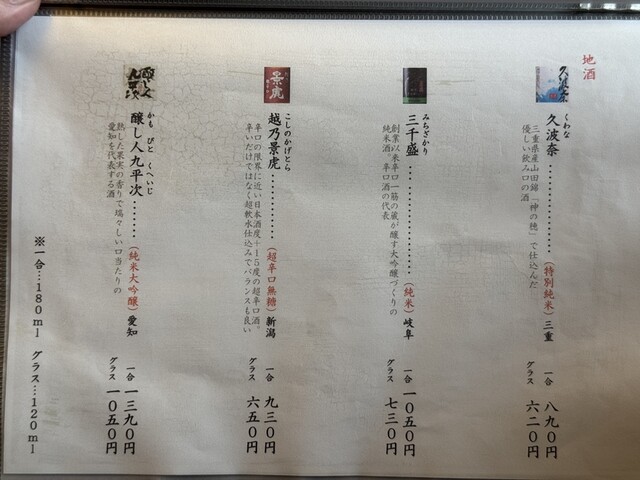 地酒
久波奈
くわな
久波奈…………(特別純米)三重
三重県産山田錦「神の穂」で仕込んだ
優しい飲み口の酒
一合 八九0円
グラス 六二0円
みちざかり
三千盛…………(純米)岐阜
創業以来辛口一筋の蔵が醸す大吟醸づくりの
純米酒。辛口酒の代表
一合 一0五0円
グラス 七三0円
景虎
こしのかげとら
越乃景虎…………(超辛口無糖)新潟
辛口の限界に近い日本酒度+15度の超辛口酒。
辛いだけではなく超軟水仕込みでバランスも良い
一合 九三0円
グラス 六五0円
醸し人
九平次
かも びと くへいじ
醸し人九平次……(純米大吟醸)愛知
熟した果実の香りで瑞々しい口当たりの
愛知を代表する酒
一合 一三九0円
グラス 一0五0円
※一合…180ml グラス…120ml